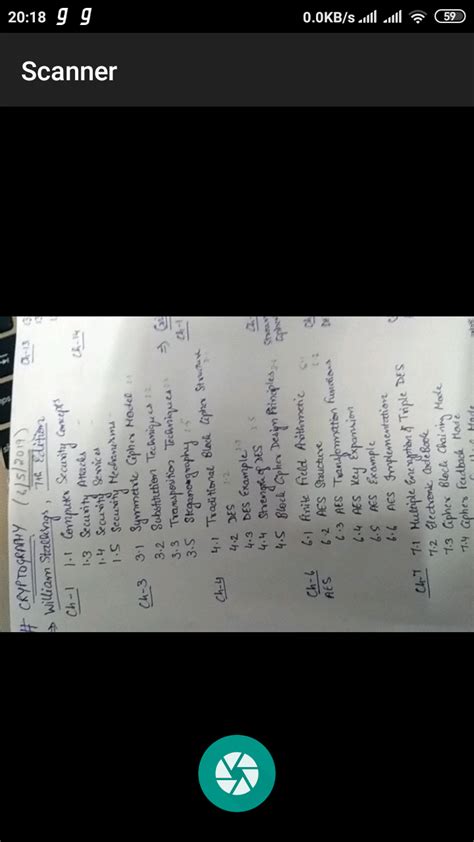 20:18 g g 0.0KB/s 59
Scanner
# CRYPTOGRAPHY (2/5/2019)
⇒ William Stallings, 7th Edition
Ch-1 1.1 Computer Security Concepts
1.3 Security Attacks
1.4 Security Services
1.5 Security Mechanisms
Ch-3 3.1 Symmetric Cipher Model
3.2 Substitution Techniques
3.3 Transposition Techniques
3.5 Steganography
Ch-4 4.1 Traditional Block Cipher Structure
4.2 DES
4.3 DES Example
4.4 Strength of DES
4.5 Block Cipher Design Principles
Ch-6 6.1 Finite Field Arithmetic
AES 6.2 AES Structure
6.3 AES Transformation Functions
6.4 AES Key Expansion
6.5 AES Example
6.6 AES Implementation
Ch-7 7.1 Multiple Encryption & Triple DES
7.2 Electronic CodeBook
7.3 Cipher Block Chaining Mode
7.4 Cipher Feedback Mode
Ch-13
Ch-14